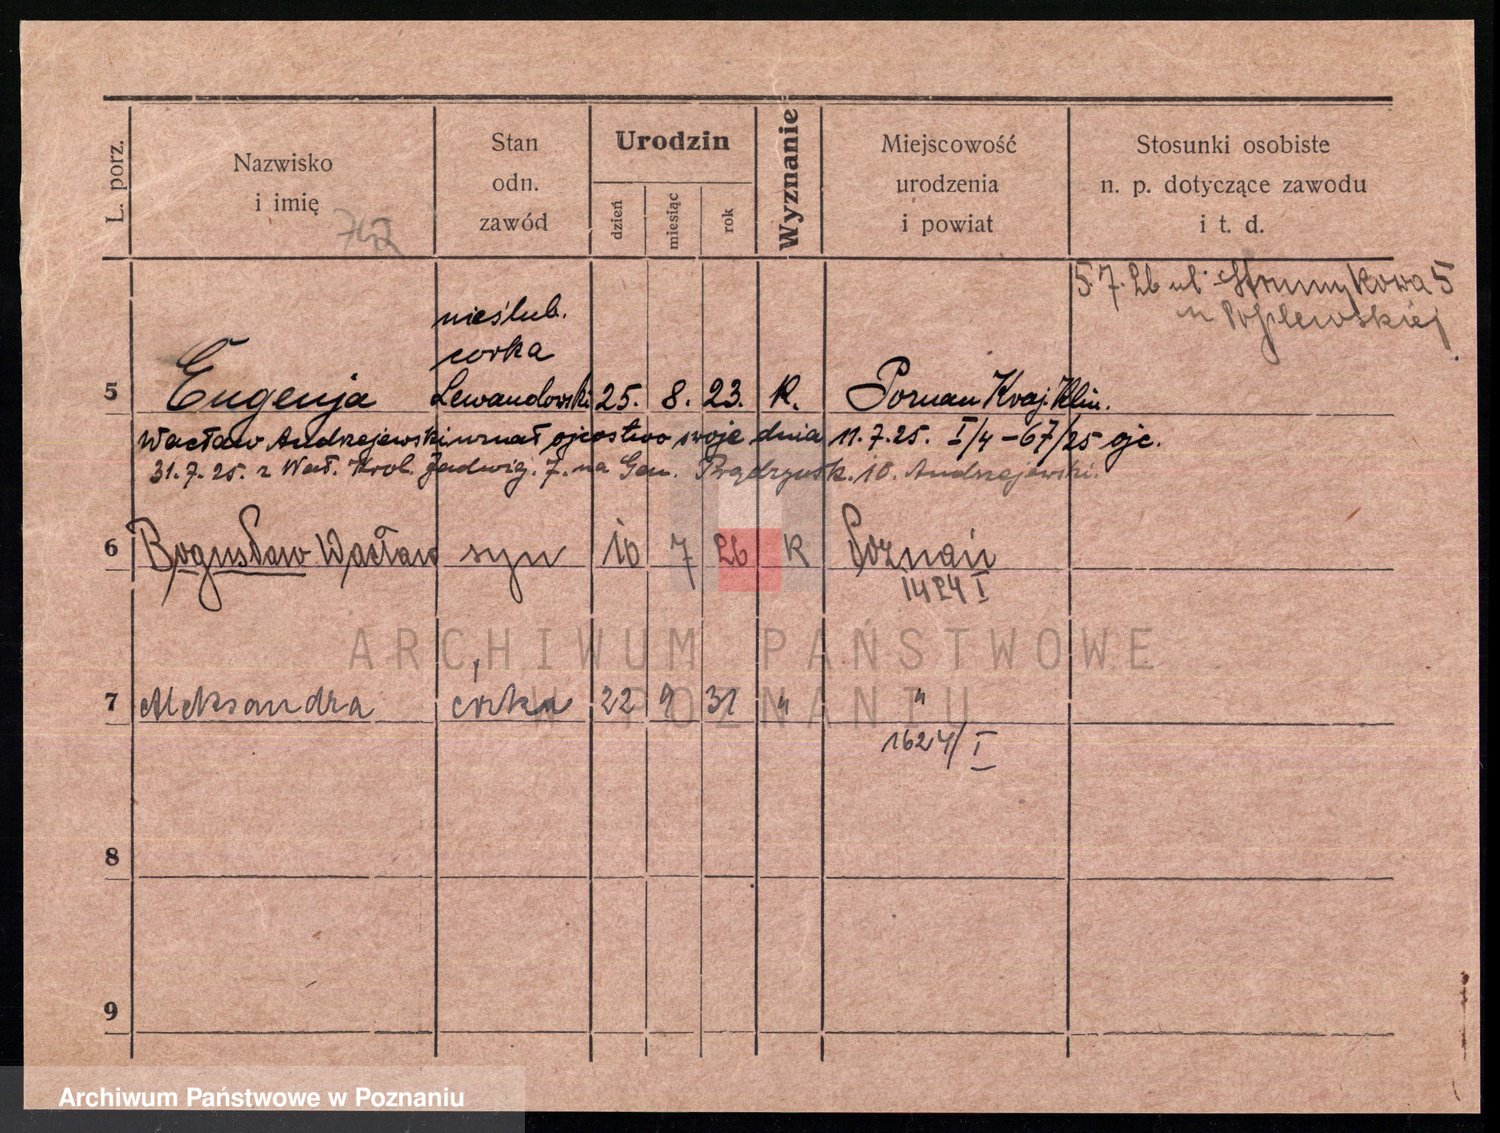 L. porz.
Nazwisko
i imię
Stan
odn.
zawód
Urodzin
dzień
miesiąc
rok
Wyznanie
Miejscowość
urodzenia
i powiat
Stosunki osobiste
n. p. dotyczące zawodu
i t. d.
5.7.26 ul. Strumykowa 5
nieślub.
corka
5 Eugenja Lewandowski 25. 8. 23. K. Poznan Kraj. Klin.
Wacław Andrzejewski uznał ojcostwo swoje dnia 11.7.25. I/4-67/25 ojc.
31.7.25. z Wał. Krol. Jadwig. 7. na Gen. Prądzyńsk. 10. Andrzejewski.
6 Bogusław Wacław syn 10 7 26 K Poznań
1424 I
ARCHIWUM PAŃSTWOWE
W POZNANIU
7 Aleksandra córka 22 9 31 " "
1624/I
8
9
Archiwum Państwowe w Poznaniu